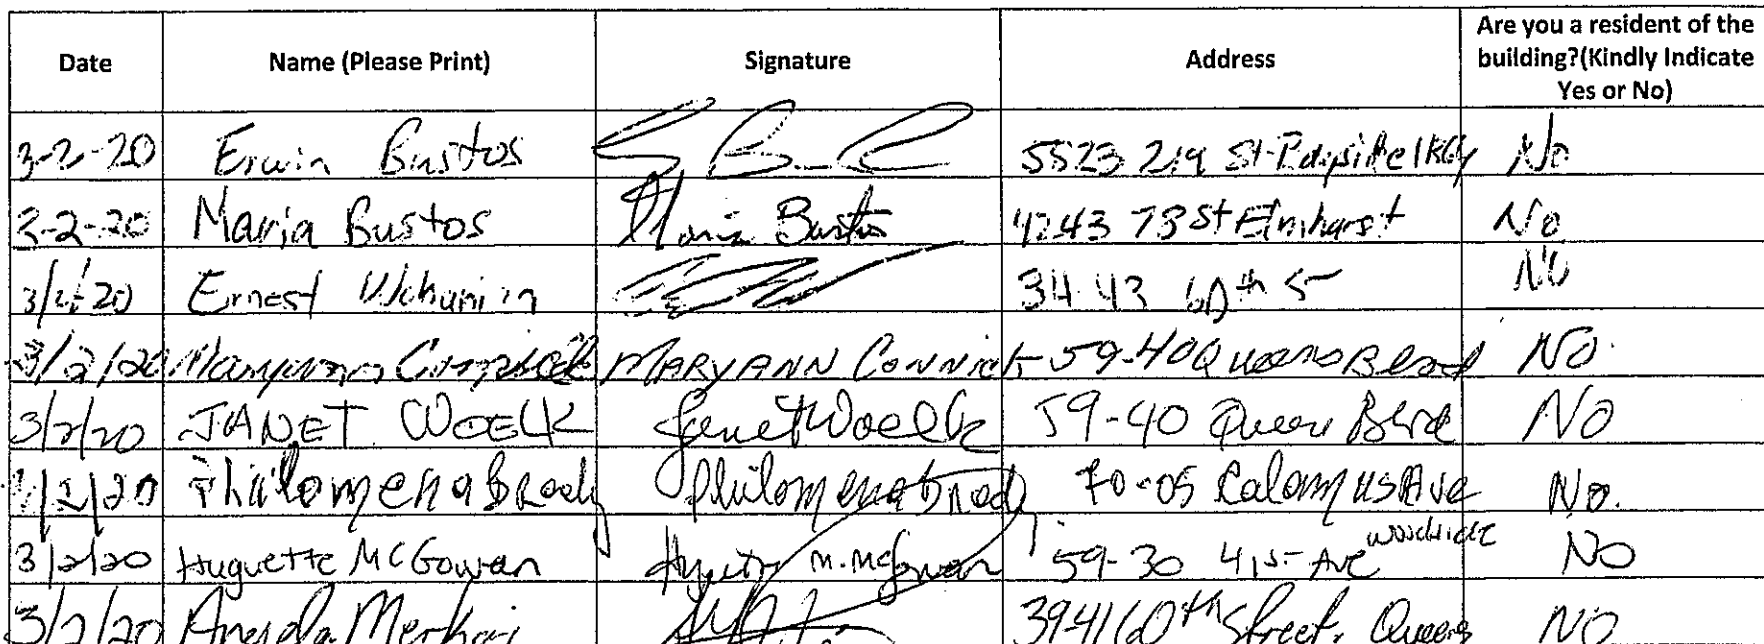 Date Name (Please Print) Signature Address Are you a resident of the building?(Kindly Indicate Yes or No)
3-2-20 Erwin Bustos 5523 219 St. No
3-2-20 Maria Bustos Maria Bustos 4243 78 St Elmhurst No
3/2/20 Ernest 34-43 60th No
3/2/20 Maryann MARYANN 59-40 Queens Blvd No.
3/2/20 JANET WOELK Janet Woelk 59-40 Queens Blvd No
3/2/20 Philomena Brady Philomena Brady 70-05 Calamus Ave No.
3/2/20 Huguette McGowan M. McGowan 59-30 41st Ave woodside No
3/2/20 Angela 3941 60th Street, Queens NO